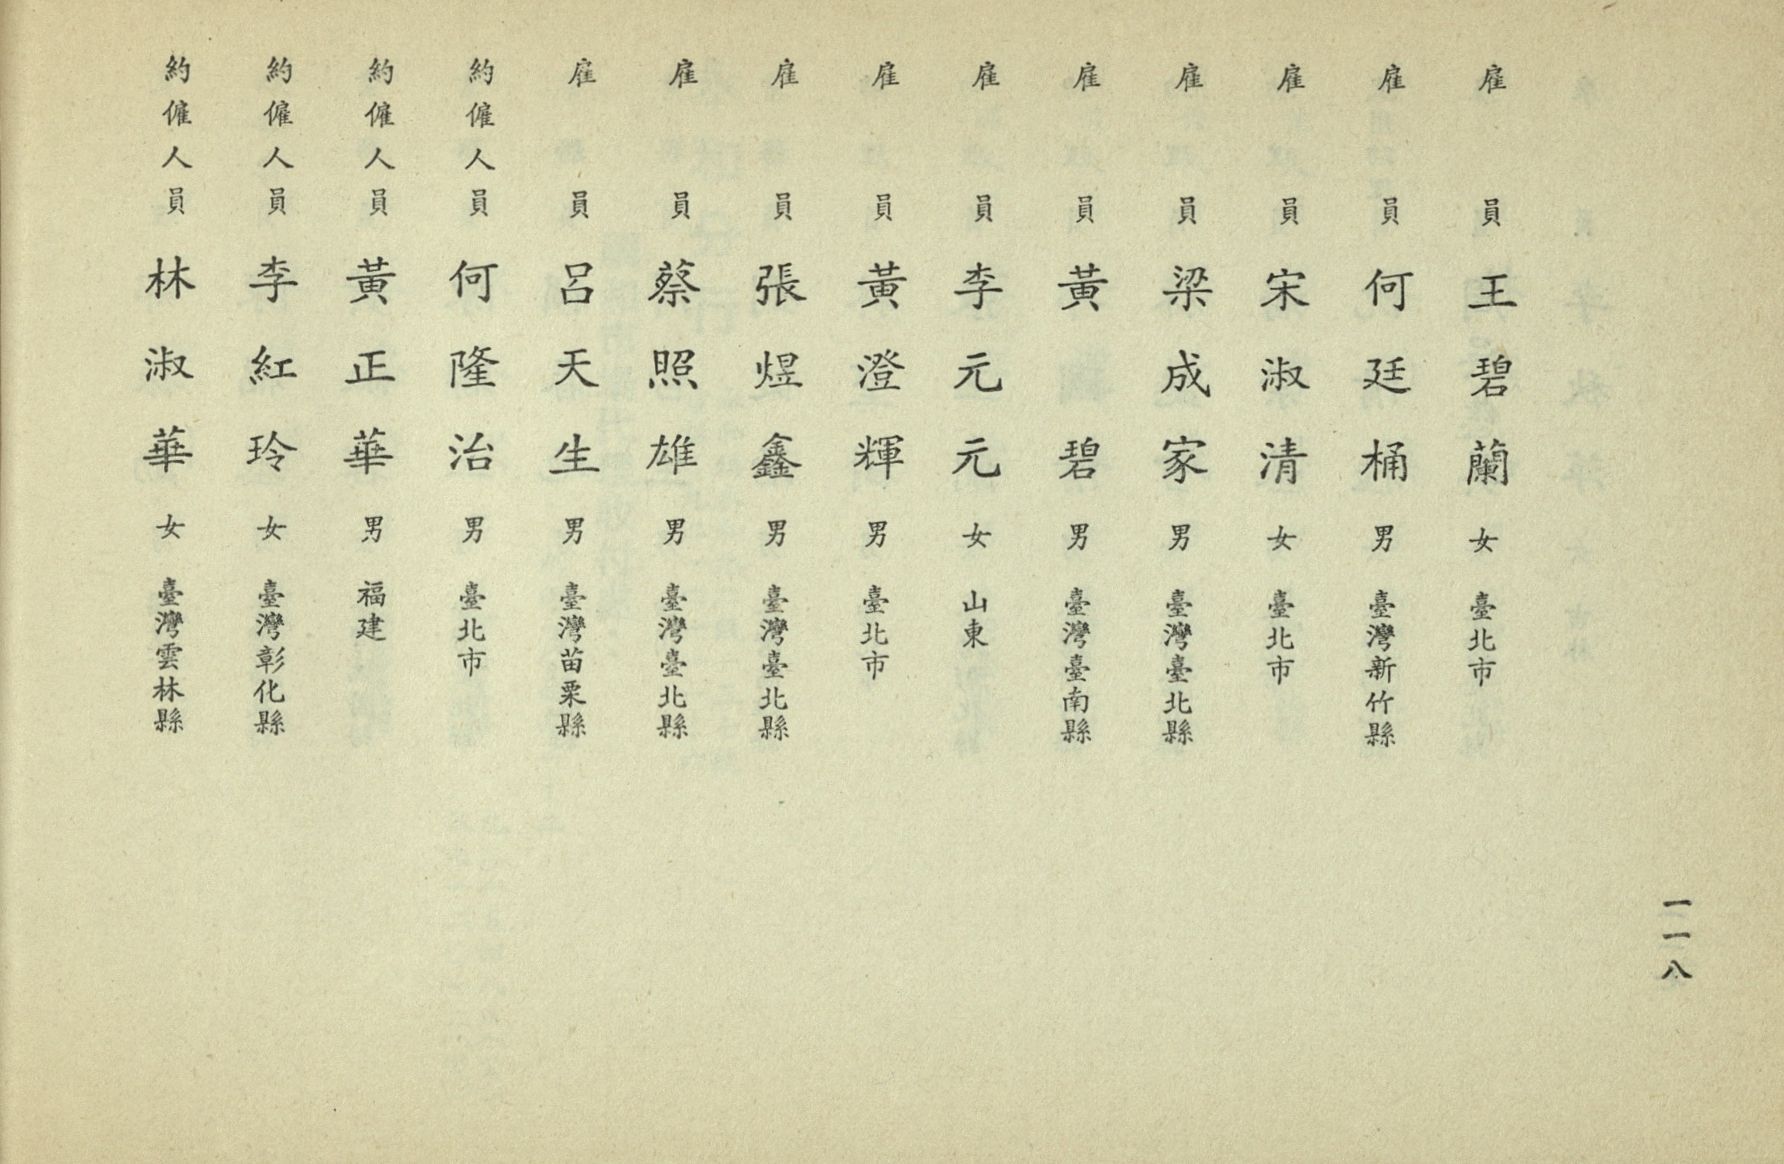 雇員 王碧蘭 女 臺北市
雇員 何廷桶 男 臺灣新竹縣
雇員 宋淑清 女 臺北市
雇員 梁成家 男 臺灣臺北縣
雇員 黃碧 男 臺灣臺南縣
雇員 李元元 女 山東
雇員 黃澄輝 男 臺北市
雇員 張煜鑫 男 臺灣臺北縣
雇員 蔡照雄 男 臺灣臺北縣
雇員 呂天生 男 臺灣苗栗縣
約僱人員 何隆治 男 臺北市
約僱人員 黃正華 男 福建
約僱人員 李紅玲 女 臺灣彰化縣
約僱人員 林淑華 女 臺灣雲林縣
一一八